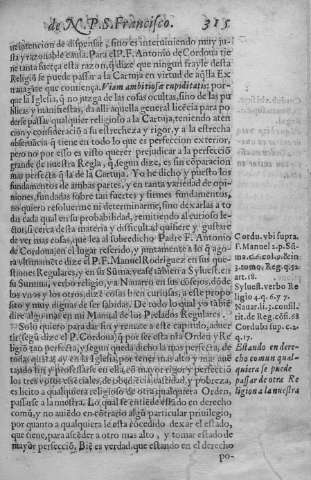 de N.P.S. Francisco. 315
intencion de dispensar, sino es interuiniendo muy ju-
sta y razonable causa. Para el P.F. Antonio de Cordoua tie
ne tanta fuerça esta razon, q̃ dize que ningun frayle desta
Religiõ se puede passar a la Cartuja en virtud de aq̃lla Ex
trauagãte que comiença. Viam ambitiosæ cupiditatis: por-
que la Iglesia, q̃ no juzga de las cosas ocultas, sino de las pu
blicas y manifiestas, da alli aquella general licẽcia para po
derse passar qualquier religioso a la Cartuja, teniendo aten
cion y consideraciõ a su estrecheza y rigor, y a la estrecha
obseruancia q̃ tiene en todo lo que es perfeccion exterior,
pero no por esso es visto querer prejudicar a la perfecciõ
grande de nuestra Regla, q̃ segun dize, es sin cõparacion
mas perfecta q̃ la de la Cartuja. Yo he dicho y puesto los
fundamentos de ambas partes, y en tanta variedad de opi-
niones, fundadas sobre tan fuertes y firmes fundamentos,
no quiero resoluerme ni determinarme, sino dexarlas a to
das cada qual en su probabilidad, remitiendo al curioso le-
ctor, si cerca desta materia y dificultad quisiere y gustare
de ver mas cosas, que lea al sobredicho Padre F. Antonio
de Cordoua, en el lugar referido, y juntamente a lo q̃ ago-
ra vltimamẽte dize el P. F. Manuel Rodriguez en sus que-
stiones Regulares, y en su Sũma, vease tãbien a Syluest. en
su Summa, verbo religio, y a Nauarro en sus cõsejos, dõde
los vnos y los otros dizẽ cosas bien curiosas, a este propo-
sito y muy dignas de ser sabidas. De todo lo qual yo tãbiẽ
dixe algo mas en mi Manual de los Prelados Regulares.
Solo quiero para dar fin y remate a este capitulo, aduer
tir segũ dize el P. Cordoua, q̃ por ser esta nra Orden y Re
ligiõ tan perfecta, segun queda dicho la mas perfecta, de
todas quãtas ay en la Iglesia, por tener mas alto y mas auẽ
tajado fin, y professarse en ella, cõ mayor rigor y perfecciõ
los tres votos essenciales, de obediẽcia, castidad, y pobreza,
es licito a qualquiera religioso de otra qualquiera Orden,
passarse a la nuestra. Lo qual se entiẽde estado en derecho
comũ, y no auiẽdo en cõtrario algũ particular priuilegio,
por quanto a qualquiera le esta cõcedido dexar el estado,
que tiene, para ascẽder a otro mas alto, y tomar estado de
mayor perfecciõ. Biẽ es verdad, que estando en el derecho
po-
Cordu. vbi supra.
F. Manuel 2. p. Sũ-
Syluest. verbo Re
ligio 4. q. 6. y 7.
Cordula sup. c. 2.
q. 17.
Estando en dere-
cho comun qual-
quiera se puede
passar de otra Re
ligion a la nuestra